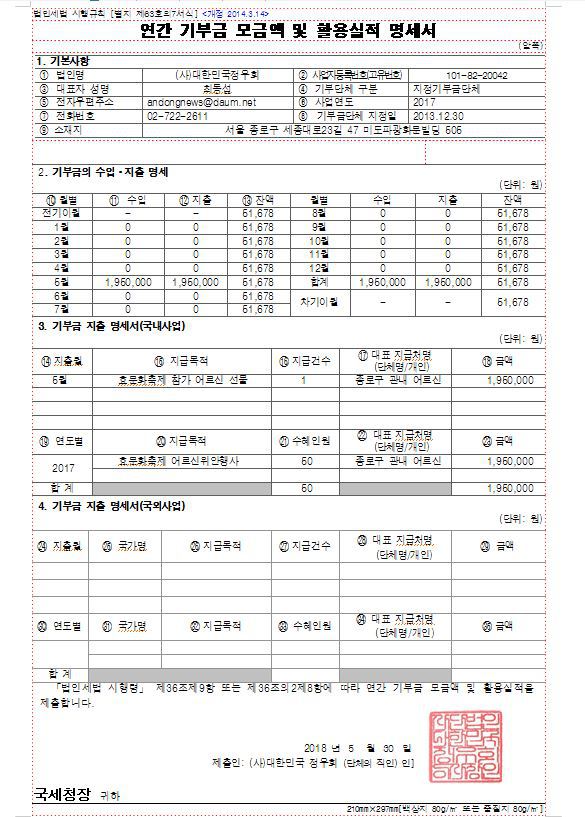 법인세법 시행규칙 [별지 제63호의7서식] <개정 2014.3.14>
연간 기부금 모금액 및 활용실적 명세서
(앞쪽)
1. 기본사항
① 법인명 (사)대한민국정우회 ② 사업자등록번호(고유번호) 101-82-20042
③ 대표자 성명 최동섭 ④ 기부단체 구분 지정기부금단체
⑤ 전자우편주소 andongnews@daum.net ⑥ 사업연도 2017
⑦ 전화번호 02-722-2611 ⑧ 기부금단체 지정일 2013.12.30
⑨ 소재지 서울 종로구 세종대로23길 47 미도파광화문빌딩 606
2. 기부금의 수입·지출 명세
(단위: 원)
⑩ 월별 ⑪ 수입 ⑫ 지출 ⑬ 잔액 월별 수입 지출 잔액
전기이월 - - 61,678 8월 0 0 61,678
1월 0 0 61,678 9월 0 0 61,678
2월 0 0 61,678 10월 0 0 61,678
3월 0 0 61,678 11월 0 0 61,678
4월 0 0 61,678 12월 0 0 61,678
5월 1,960,000 1,960,000 61,678 합계 1,960,000 1,960,000 61,678
6월 0 0 61,678 차기이월 - - 61,678
7월 0 0 61,678
3. 기부금 지출 명세서(국내사업)
(단위: 원)
⑭ 지출월 ⑮ 지급목적 ⑯ 지급건수 ⑰ 대표 지급처명 (단체명/개인) ⑱ 금액
5월 효문화축제 참가 어르신 선물 1 종로구 관내 어르신 1,960,000
⑲ 연도별 ⑳ 지급목적 ㉑ 수혜인원 ㉒ 대표 지급처명 (단체명/개인) ㉓ 금액
2017 효문화축제 어르신위안행사 60 종로구 관내 어르신 1,960,000
합 계 60 1,960,000
4. 기부금 지출 명세서(국외사업)
(단위: 원)
㉔ 지출월 ㉕ 국가명 ㉖ 지급목적 ㉗ 지급건수 ㉘ 대표 지급처명 (단체명/개인) ㉙ 금액
㉚ 연도별 ㉛ 국가명 ㉜ 지급목적 ㉝ 수혜인원 ㉞ 대표 지급처명 (단체명/개인) ㉟ 금액
합 계
「법인세법 시행령」 제36조제9항 또는 제36조의2제8항에 따라 연간 기부금 모금액 및 활용실적을
제출합니다.
2018 년 5 월 30 일
제출인: (사)대한민국 정우회 (단체의 직인) 인]
국세청장 귀하
210mm×297mm[백상지 80g/㎡ 또는 중질지 80g/㎡]